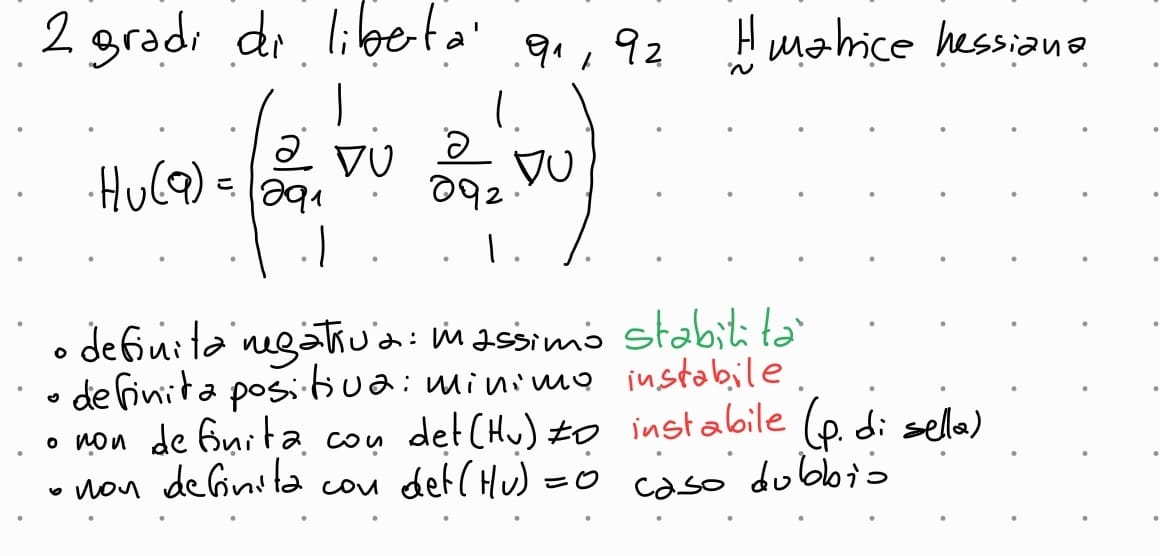 2 gradi di libertà q₁, q₂ H̰ matrice hessiana
H_U(q) = ( | ∂/∂q₁ ∇U | | ∂/∂q₂ ∇U | )
• definita negativa: massimo stabilità
• definita positiva: minimo instabile
• non definita con det(H_U) ≠ 0 instabile (p. di sella)
• non definita con det(H_U) = 0 caso dubbio